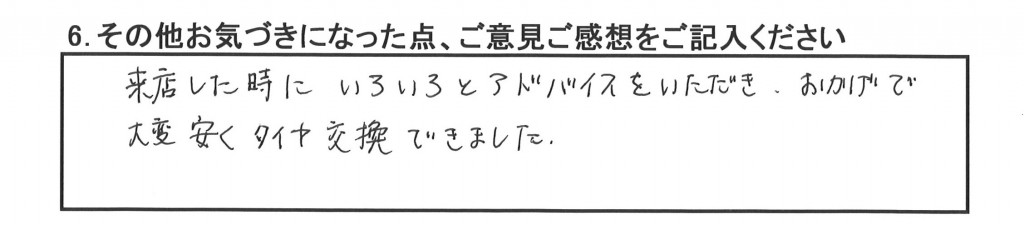 6.その他お気づきになった点、ご意見ご感想をご記入ください
来店した時に いろいろとアドバイスをいただき、おかげで
大変安くタイヤ交換できました.